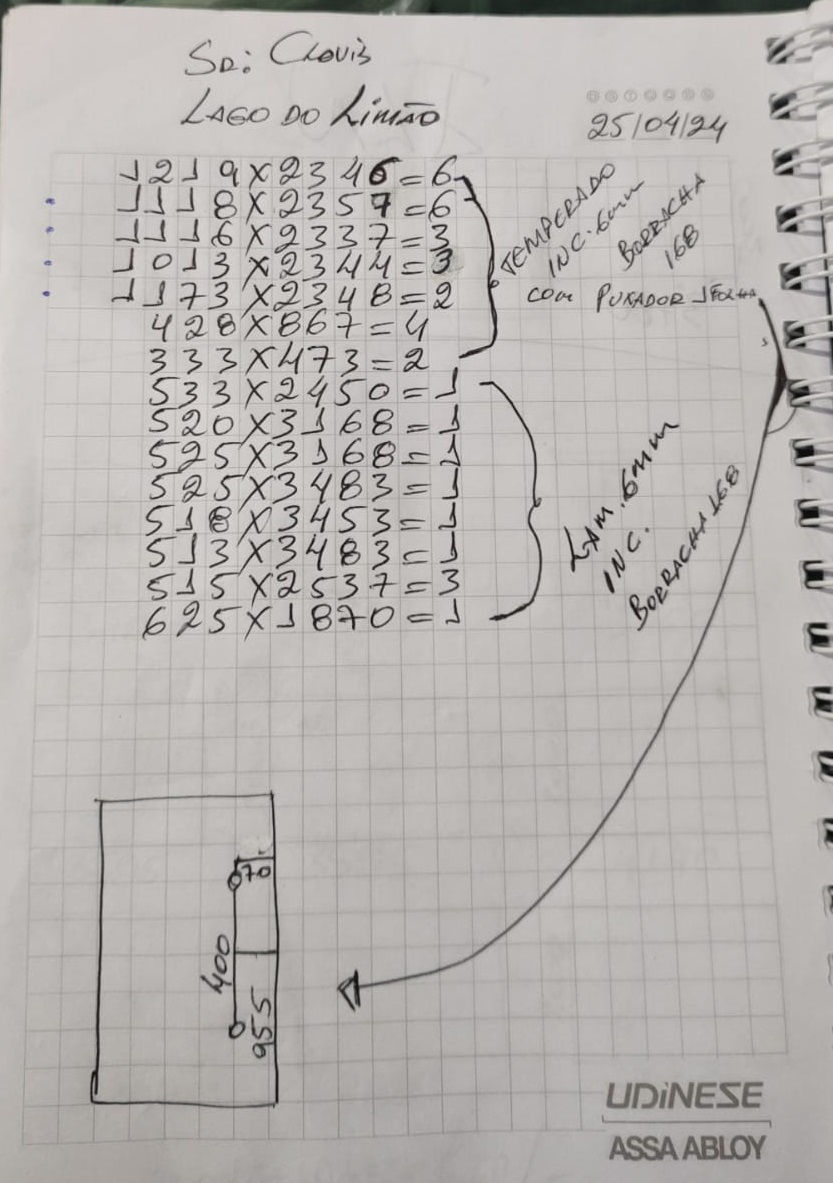 Sr: Clovis
Lago do Limão
25/04/24
1219x2346=6
1118x2357=6
1116x2337=3
1013x2344=3
1173x2348=2
428x867=4
333x473=2
Temperado
Inc. 6mm
Borracha
168
com Puxador 1 Folha
533x2450=1
520x3168=1
525x3168=1
525x3483=1
518x3453=1
513x3483=1
515x2537=3
625x1870=1
Lam. 6mm
Inc.
Borracha 168
70
400
955
UDiNESE
ASSA ABLOY